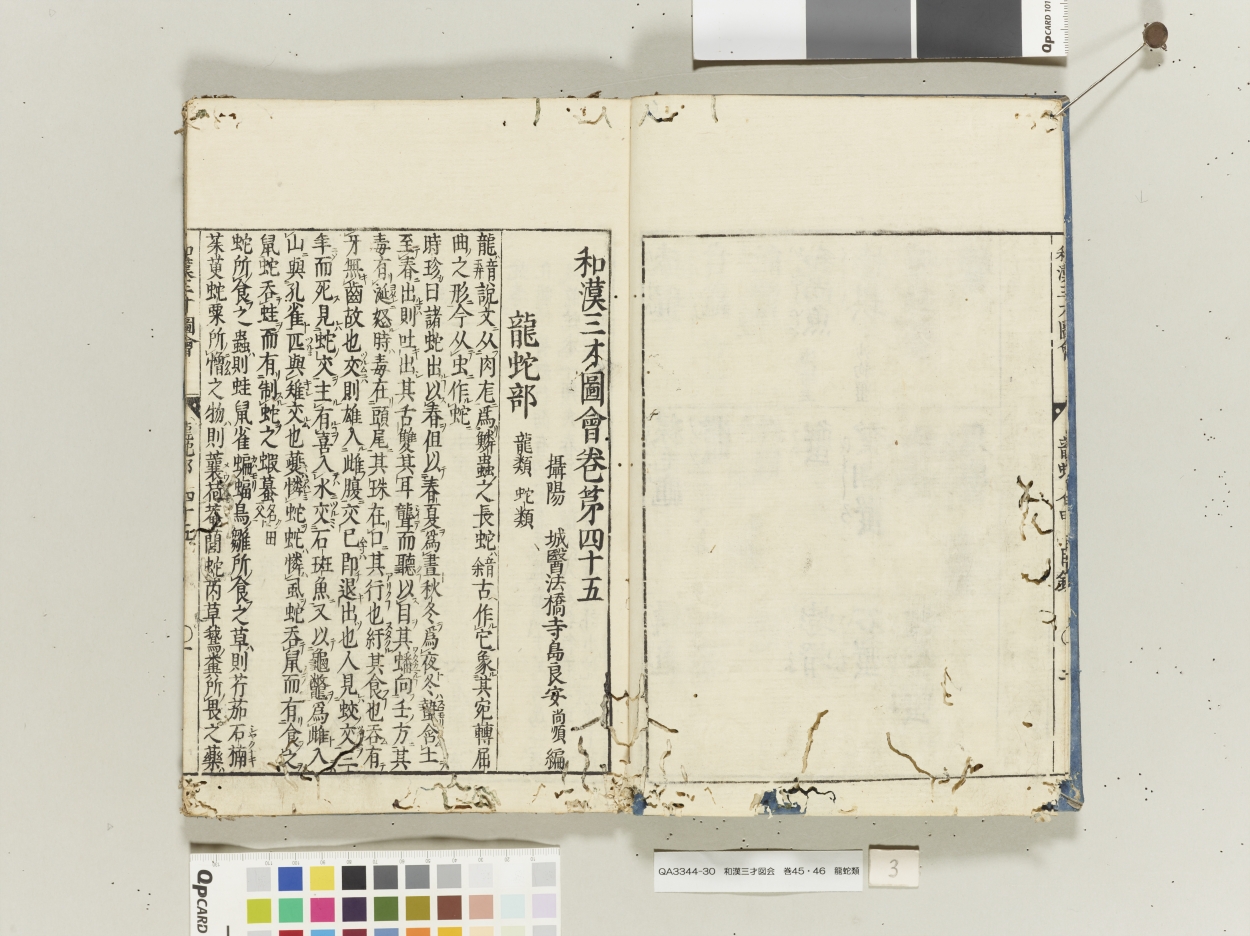 和漢三才圖會卷第四十五
攝陽 城醫法橋寺島良安尚順編
龍蛇部 龍類 蛇類
龍蛇部
龍說文从肉㐬爲鱗蟲之長蛇古作它象其宛轉屈
曲之形今从虫作蛇
時珍曰諸蛇出以春但以春夏爲晝秋冬爲夜冬蟄含土
至春出則吐出其舌雙其耳聾而聽以目其蟠向壬方其
毒有涎怒時毒在頭尾其珠在口其行也紆其食也吞有
牙無齒故也交則雄入雌腹交已即退出也人見蛇交三
年而死見蛇交主有喜入水交石斑魚又以龜鼈爲雌入
山與孔雀匹與雉交也夔憐蚿蚿憐風蛇吞鼠而有食之
鼠蛇吞蛙而有制蛇之蝦蟇名田父
蛇所食之蟲則蛙鼠雀蝙蝠鳥雛所食之草則芹茄石楠
茱萸蛇粟所憎之物則蘘荷菴䕡蛇䒜草鵞糞所畏之藥
QPCARD 101
QPCARD
QA3344-30 和漢三才図会 巻45・46 龍蛇類
3